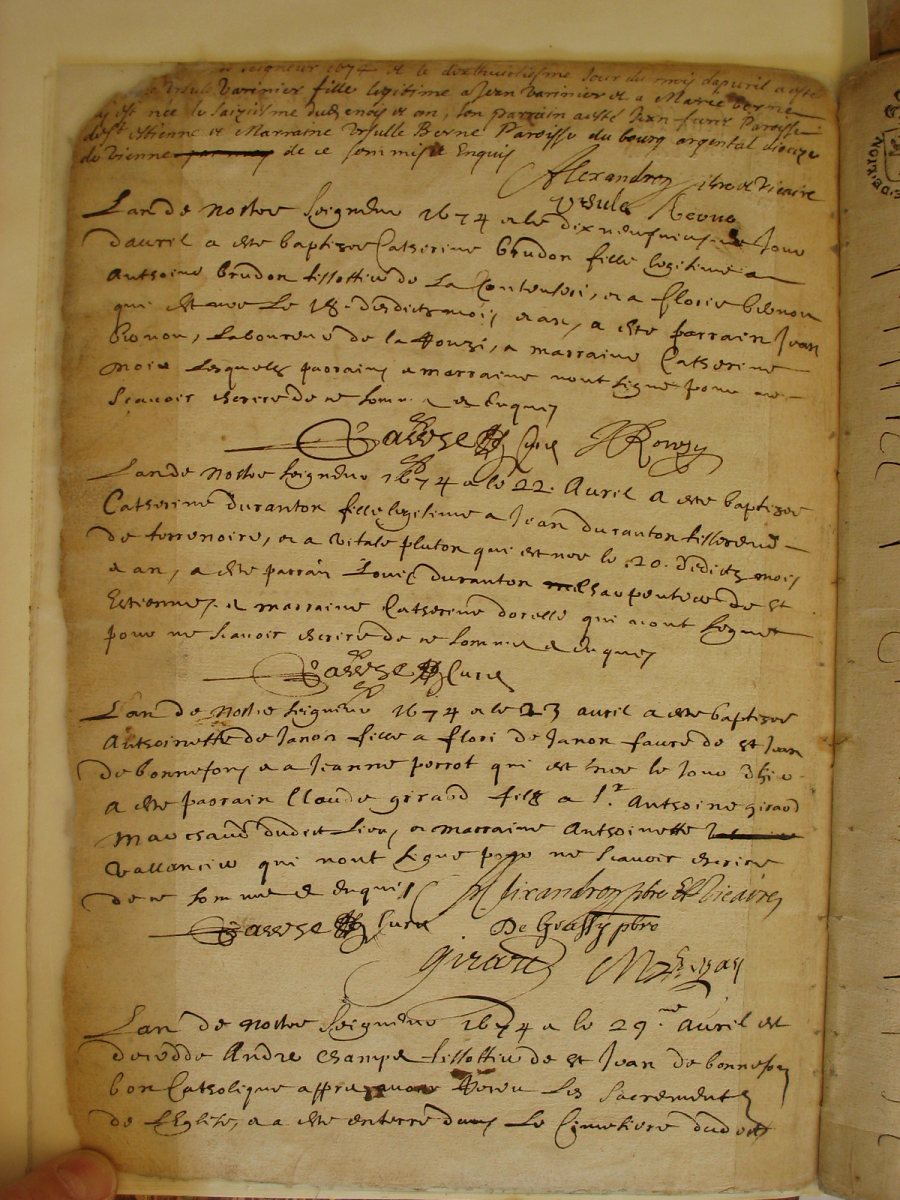 seigneur 1674 et le dixhuictiesme Jour du mois dapuril a esté
Ursule Varinier fille legitime a Jean Varinier et a Marie berne
est née le saiziesme dud. mois et an, son parrain a esté Jean faure Paroisse
de st estienne et Marraine Ursulle Berne Paroysse du bourg argental dioceze
de Vienne de ce sommé et Enquis
Alexandron pbre et Vicaire
Ursule Berne
Lan de nostre Seigneur 1674 et le dixneufviesme Jour
dauril a esté baptizee Catherine brudon fille legitime a
Antoine brudon tissottier de La et a florie beonou
qui est nee Le 18. desdicts mois et an, a esté parrain Jean
beonou, Laboureur de la et marraine Catherine
moin Lesquels parrain et marraine nont signé pour ne
scauoir escrire de ce somme et enquis
Curé JRouzy
Lan de nostre seigneur 1674 et le 22. Auril a esté baptizee
Catherine duranton fille legitime a Jean duranton
de terrenoire, et a vitale pluton qui est nee le .20. desdicts mois
et an, a esté parrain Louis duranton de st
Estienne, et marraine Catherine dorelle qui nont signet
pour ne scauoir escrire de ce somme et enquis
Curé
Lan de nostre seigneur 1674 et le 23 auril a esté baptizee
Antoinette de Janon fille a flori de Janon faure de st Jean
de bonnefons et a Jeanne perrot qui est nee le Jour
a esté parrain Claude girard fils a sr. Antoine girard
marchand dudict Lieu, et marraine Antoinette
vallancier qui nont signe pour ne scauoir escrire
de ce somme et enquis Alixandron pbre et Vicaire
Curé De Grassy pbre
girard
Lan de nostre Seigneur 1674 et le 29.me auril est
decedde Andre Champt tissottier de st Jean de bonnefon
bon Catholique appres auoir Receu Les sacrements
de LEglise, et a esté enterre dans Le Cimetiere dudict